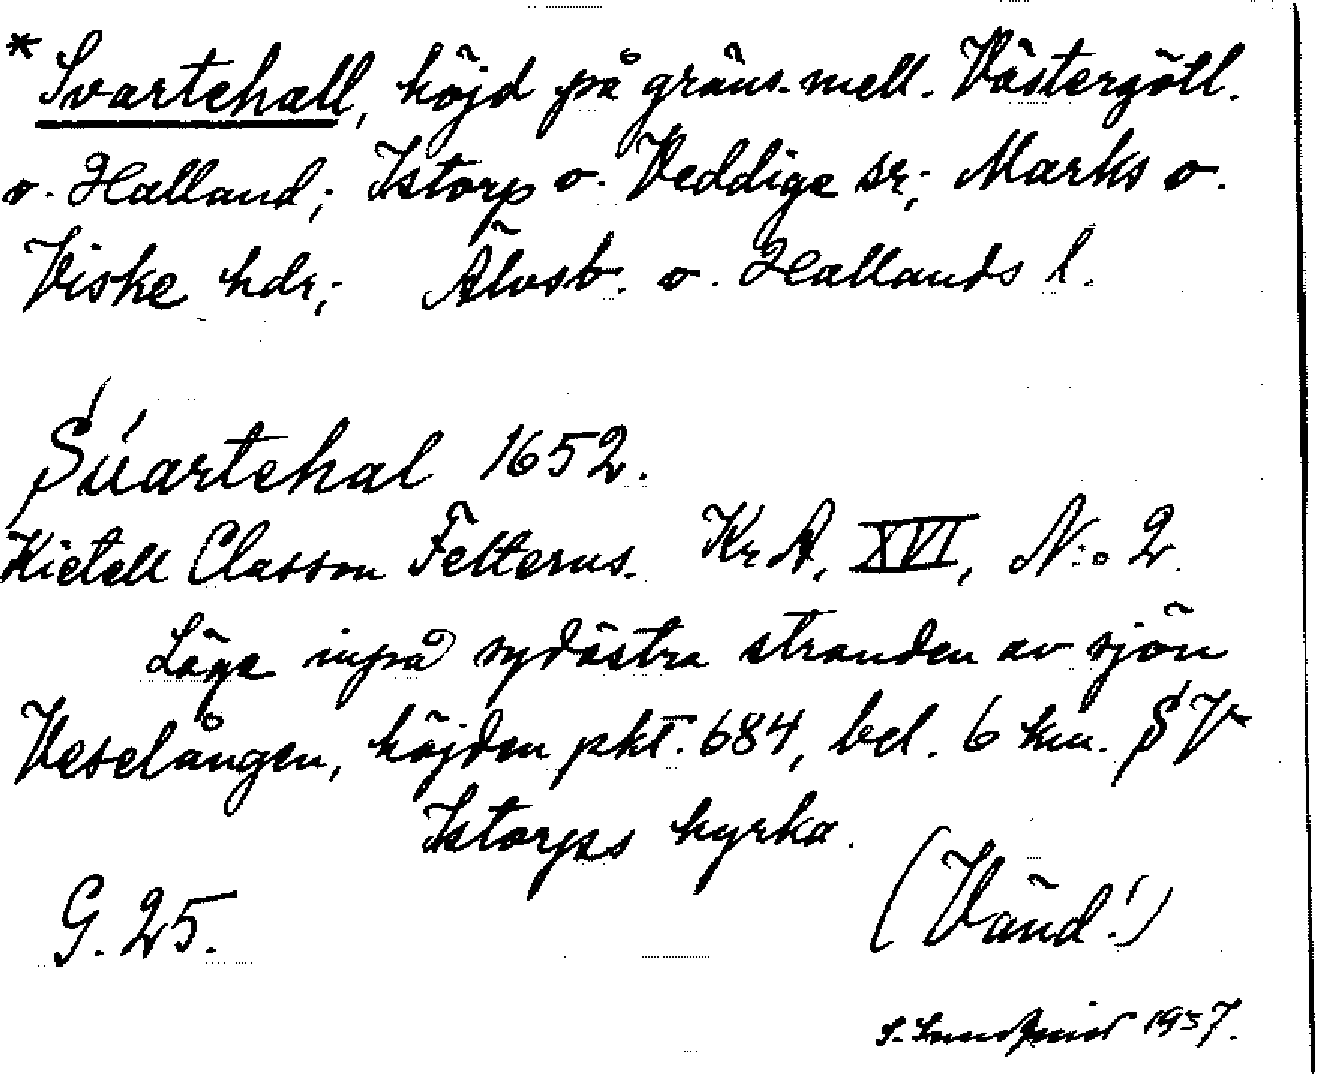 * Svartehall, höjd på gräns. mell. Västergötl.
o. Halland; Istorp o. Veddige sr; Marks o.
Viske hdr; Älvsb. o. Hallands l.
Súartehal 1652.
Kietell Classon Felterus. Kr A, XVI, N:o 2.
Läge inpå sydöstra stranden av sjön
Veselången, höjden pkt. 684, bel. 6 km. SV
Istorps kyrka.
G. 25.
(Vänd!)
S. 1937.